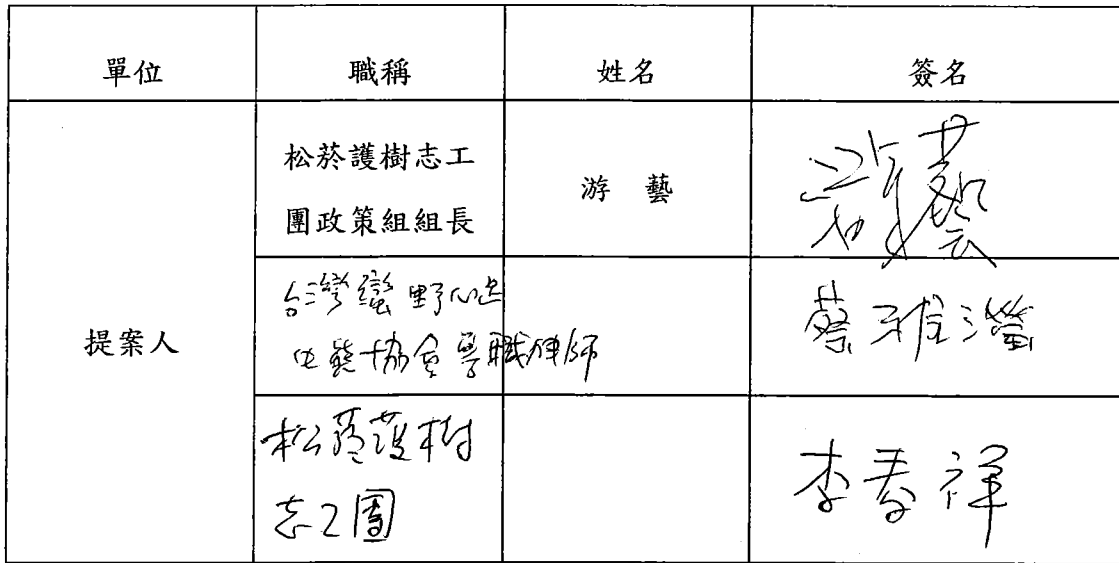 單位 職稱 姓名 簽名
提案人
松菸護樹志工
團政策組組長
游 藝
游藝
台灣蠻野心足
生態協會專職律師
蔡雅瀅
松菸護樹
志工團
李春祥